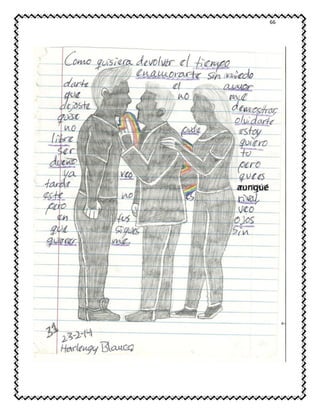 66
Como quisiera devolver el tiempo
enamorarte sin miedo
darte el amor
que no me
dejaste demostrar
quise olvidarte
no pude estoy
libre quiero
ser tu
dueño pero
ya veo que es
tarde aunque
este no es rival
pero veo
en tus ojos
que sigues sin
querer me
31
23-2-14
Harlengy Blanco